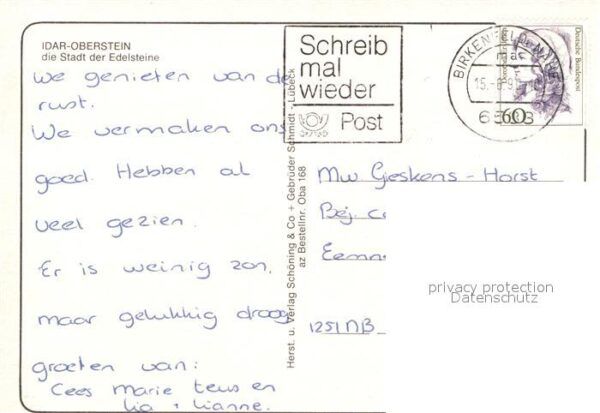 IDAR-OBERSTEIN
die Stadt der Edelsteine
we genieten van de
rust.
We vermaken ons
goed. Hebben al
veel gezien.
Er is weinig zon,
maar gelukkig droog
groeten van:
Cees Marie teus en
Lia + Lianne.
Herst. u. Verlag Schöning & Co + Gebrüder Schmidt - Lübeck
az Bestellnr. Oba 168
Schreib
mal
wieder
Post
BIRKENFELD, NAHE
Deutsche Bundespost
60
Mw. Gieskens - Horst
Bej.
Eemn
1251 NB
privacy protection
Datenschutz